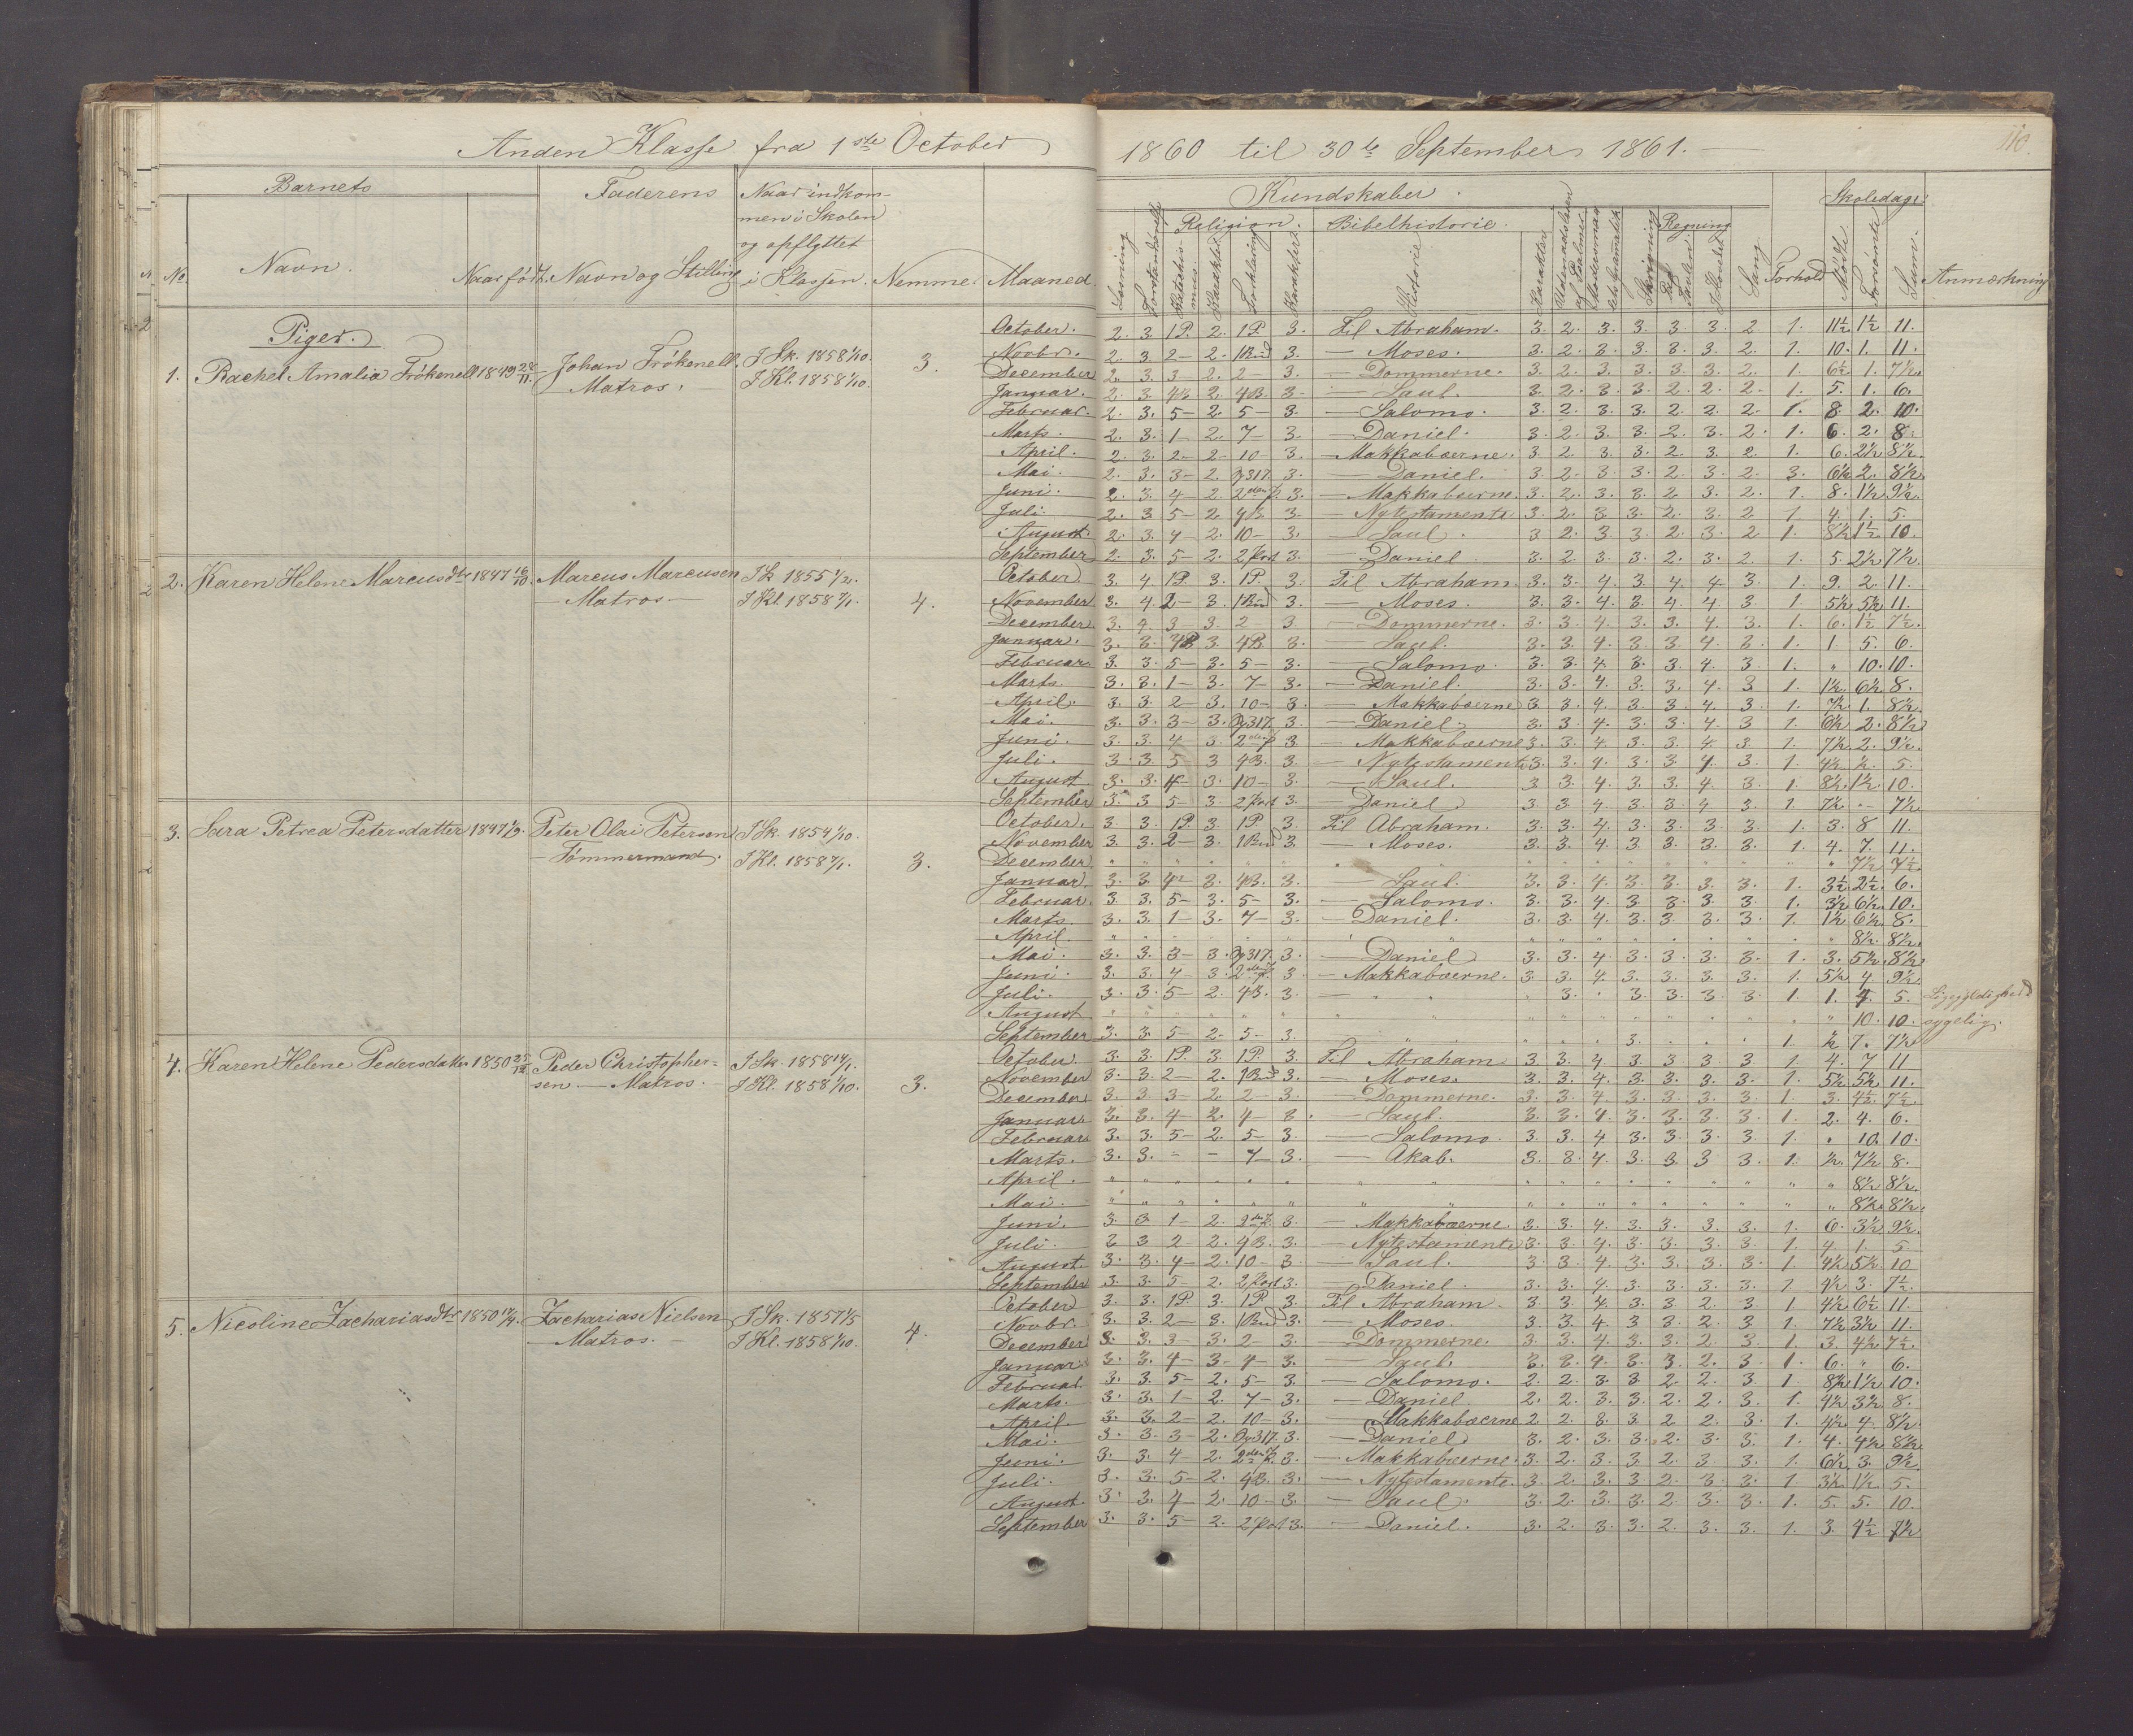 Anden Klasse fra 1ste October 1860 til 30te September 1861.
110.
Barnets
Faderens
Naar indkommen i Skolen og opflyttet i Klassen.
Kundskaber.
Skoledage
Religion. Bibelhistorie. Regning
No. Navn. Naar født. Navn og Stilling Nemme. Maaned.
Læsning Historie Karakter Sang Forhold Mødte Forsømte Sum. Anmærkning
Piger.
1. Rachel Amalia Frökenell 1849 28/11. Johan Frökenell. Matros. I Sk. 1858 1/10. I Kl. 1858 1/10. 3.
October. 2. 3. 1P. 2. 1P. 3. Til Abraham. 3. 2. 3. 3. 3. 3. 2 1. 11½ 1½ 11.
Novbr. 2. 3 2- 2. 3. — Moses. 3. 2. 3. 3. 3. 3. 2. 1. 10. 1. 11.
December 2. 3. 3- 2. 2- 3. — Dommerne. 3. 2. 3. 3. 3. 3. 2. 1. 6½ 1. 7½.
Januar. 2. 3. 4B 2. 4B. 3. — Saul. 3. 2. 3. 3. 2. 2. 2. 1. 5. 1. 6.
Februar. 2. 3. 5- 2 5- 3. — Salomo. 3. 2. 3. 3. 2. 2. 2. 1. 8. 2. 10.
Marts. 2. 3. 1- 2. 7- 3. — Daniel. 3. 2. 3. 3. 2. 3. 2. 1. 6. 2. 8.
April. 2. 3. 2- 2- 10- 3. — Makkabæerne. 3. 2. 3. 3. 2. 3. 2. 1. 6. 2½ 8½.
Mai. 2. 3. 3- 2. 3. — Daniel. 3. 2. 3. 3. 2. 3. 2. 3. 6½ 2. 8½.
Juni. 2. 3. 4- 2. 3. — Makkabæerne. 3. 2. 3. 3. 2. 3. 2. 1. 8. 1½ 9½.
Juli. 2. 3 5- 2. 4B. 3. — Nytestamente 3. 2. 3. 3. 2. 3. 2 1 4. 1. 5.
August. 2. 3. 4- 2. 10- 3. — Saul. 3 2. 3 3. 2. 3. 2 1. 8½ 1½ 10.
September 2. 3. 5- 2. 3. — Daniel 3. 2 3. 3. 2. 3. 2. 1. 5. 2½ 7½.
2. Karen Helene Marcusdtr 1847 16/10. Marcus Marcusen — Matros — I Sk 1855 I Kl. 1858 7/1. 4.
October 3. 4. 1P. 3. 1P. 3. Til Abraham 3. 3. 4. 3 4. 4. 3. 1. 9. 2. 11.
November 3. 4 2- 3. 3. — Moses. 3. 3. 4. 3. 4. 4. 3. 1. 5½ 5½ 11.
December. 3. 4. 3- 3. 2- 3 — Dommerne. 3. 3. 4. 3. 3. 4. 3. 1. 6. 1½ 7½.
Januar. 3. 3. 4B 3. 4B. 3. — Saul. 3. 3. 4. 3. 3. 4. 3. 1. 1. 5. 6.
Februar. 3. 3. 5- 3. 5- 3. — Salomo. 3. 3. 4. 3. 3. 4. 3. 1. " 10. 10.
Marts. 3. 3. 1- 3. 7- 3. — Daniel. 3. 3. 4. 3. 3. 4. 3 1. 1½ 6½ 8.
April. 3. 3. 2 3. 10- 3. — Makkabæerne 3 3. 4. 3. 3. 4. 3. 1. 7½ 1. 8½.
Mai. 3. 3. 3- 3. 3. — Daniel. 3. 3. 4. 3. 3. 4. 3 1. 6½ 2. 8½
Juni. 3. 3. 4- 3. 3. — Makkabæerne 3. 3. 4. 3. 3. 4. 3. 1. 7½ 2. 9½.
Juli. 3 3. 5 3 4B. 3 — Nytestamente 3. 3. 4. 3. 3 4. 3. 1. 4½ ½ 5.
August 3. 3. 4 3. 10- 3. — Saul. 3 3 4. 3. 3. 4. 3. 1. 8½ 1½ 10.
September 3. 3 5- 3. 3. — Daniel. 3. 3. 4. 3. 3. 4 3. 1. 7½ - 7½
3. Sara Petrea Petersdatter 1847 Peter Olai Petersen — Tømmermand. I Sk 1854 1/10. I Kl. 1858 7/1. 3.
October. 3. 3. 1P 3 1P. 3. Til Abraham. 3. 3. 4. 3. 3. 3. 3. 1. 3. 8 11.
November 3. 3. 2- 3. 3. — Moses. 3. 3. 4. 3. 3. 3. 3. 1. 4. 7. 11.
December " " " " " " " " " " " " " " " " 7½ 7½.
Januar. 3. 3 4- 3. 4B. 3. — Saul. 3. 3. 4. 3. 3. 3. 3. 1. 3½ 2½ 6.
Februar. 3. 3. 5- 3. 5- 3. — Salomo. 3. 3. 4. 3 3. 3. 3 1. 3½ 6½ 10.
Marts. 3. 3. 1- 3. 7- 3. — Daniel. 3. 3. 4. 3. 3. 3. 3. 1. 1½ 6½ 8.
April. " " " " " " " " " " " " " " " " 8½ 8½.
Mai. 3. 3. 3- 3. 3. — Daniel 3. 3. 4. 3. 3. 3. 3. 1. 3. 5½ 8½
Juni. 3. 3. 4- 3. 3. — Makkabæerne. 3. 3. 4. 3. 3. 3. 3. 1. 5½ 4. 9½.
Juli. 3. 3. 5- 2. 4B. 3. — " " 3. " 3. 3. 3 3. 1. 1. 4. 5. Ligegyldighed
August " " " " " " " " " " " " " " " " 10. 10.
September 3. 3. 5- 2. 5- 3. " " " " 3. " " " 1. ½ 7. 7½
4. Karen Helene Pedersdatter 1850 25/12 Peder Christophersen. — Matros. — I Sk. 1858 14/1. I Kl. 1858 1/10. 3.
October. 3. 3. 1P. 3. 1P. 3. Til Abraham 3. 3. 4 3. 3. 3. 3 1. 4. 7 11
November 3. 3. 2- 2. 3. — Moses. 3. 3. 4. 3. 3. 3. 3. 1. 5½ 5½ 11.
December 3. 3 3- 2. 2- 3. — Dommerne. 3. 3. 4 3. 3. 3. 3 1. 3. 4½ 7½.
Januar. 3. 3. 4- 2. 4- 3. — Saul. 3. 3. 4. 3. 3. 3. 3. 1. 2. 4. 6.
Februar. 3. 3. 5- 2. 5- 3. — Salomo. 3. 3. 4 3. 3. 3. 3. 1. " 10. 10.
Marts. 3. 3. - - 7- 3. — Akab. 3. 3. 4. 3. 3. 3 3. 1. ½. 7½ 8.
April. " " " " " " " " " " " " " " " " 8½ 8½.
Mai. " " " " " " " " " " " " " " " " 8½ 8½.
Juni. 3. 3 1- 2. 3. — Makkabæerne. 3. 3. 4. 3. 3. 3. 3. 1. 6. 3½ 9½.
Juli. 2 3 2- 2. 4B. 3. — Nytestamente 3. 3. 4. 3. 3. 3. 3. 1. 4. 1. 5.
August. 3. 3. 4- 2. 10- 3. — Saul. 3. 3. 4. 3. 3. 3. 3. 1 4½ 5½ 10
September 3. 3. 5- 2. 3. — Daniel. 3. 3. 4. 3. 3. 3. 3. 1 4½ 3. 7½.
5. Nicoline Zachariasdtr 1850 Zacharias Nielsen — Matros. — I Sk. 1857 1/5 I Kl. 1858 1/10. 4.
October 3. 3. 1P. 3. 1P. 3. Til Abraham. 3. 3. 4. 3. 3 2. 3 1 4½ 6½ 11.
Novbr. 3. 3. 2- 3. 3. — Moses. 3. 3. 4. 3. 3. 2. 3 1. 7½ 3½ 11.
December 3. 3. 3- 3. 2- 3. — Dommerne. 3. 3. 4. 3. 3. 2. 3. 1. 3. 4½ 7½.
Januar 3. 3. 4- 3- 4- 3. — Saul. 3. 3. 4. 3. 3. 2. 3. 1. 6. " 6.
Februar. 3. 3. 5- 2. 5- 3. — Salomo. 2. 2. 3. 3. 2. 2. 3. 1 8½ 1½ 10.
Marts. 3. 3. 1- 2. 7- 3. — Daniel. 2. 2. 3. 3. 2. 2. 3. 1. 4½ 3½ 8.
April. 3. 3. 2- 2. 10- 3. — Makkabæerne 2 2. 3. 3. 2 2. 3. 1. 4½ 4. 8½
Mai. 3. 3. 3- 2. 3. — Daniel 3. 2. 3. 3. 2. 3. 3. 1. 4. 4½ 8½
Juni. 3. 3. 4- 2. 3. — Makkabæerne. 3. 2. 3. 3 2. 3. 3. 1. 6½ 3. 9½.
Juli. 3. 3. 5- 2. 4B. 3. — Nytestamente. 3. 2. 3. 3 2. 3. 3. 1 3½ 1½ 5.
August. 3. 3. 4- 2. 10- 3. — Saul. 3. 2. 3. 3. 2. 3. 3. 1. 5. 5. 10.
September 3. 3. 5- 2. 3. — Daniel. 3. 2. 3. 3. 2. 3. 3. 1. 3. 4½ 7½